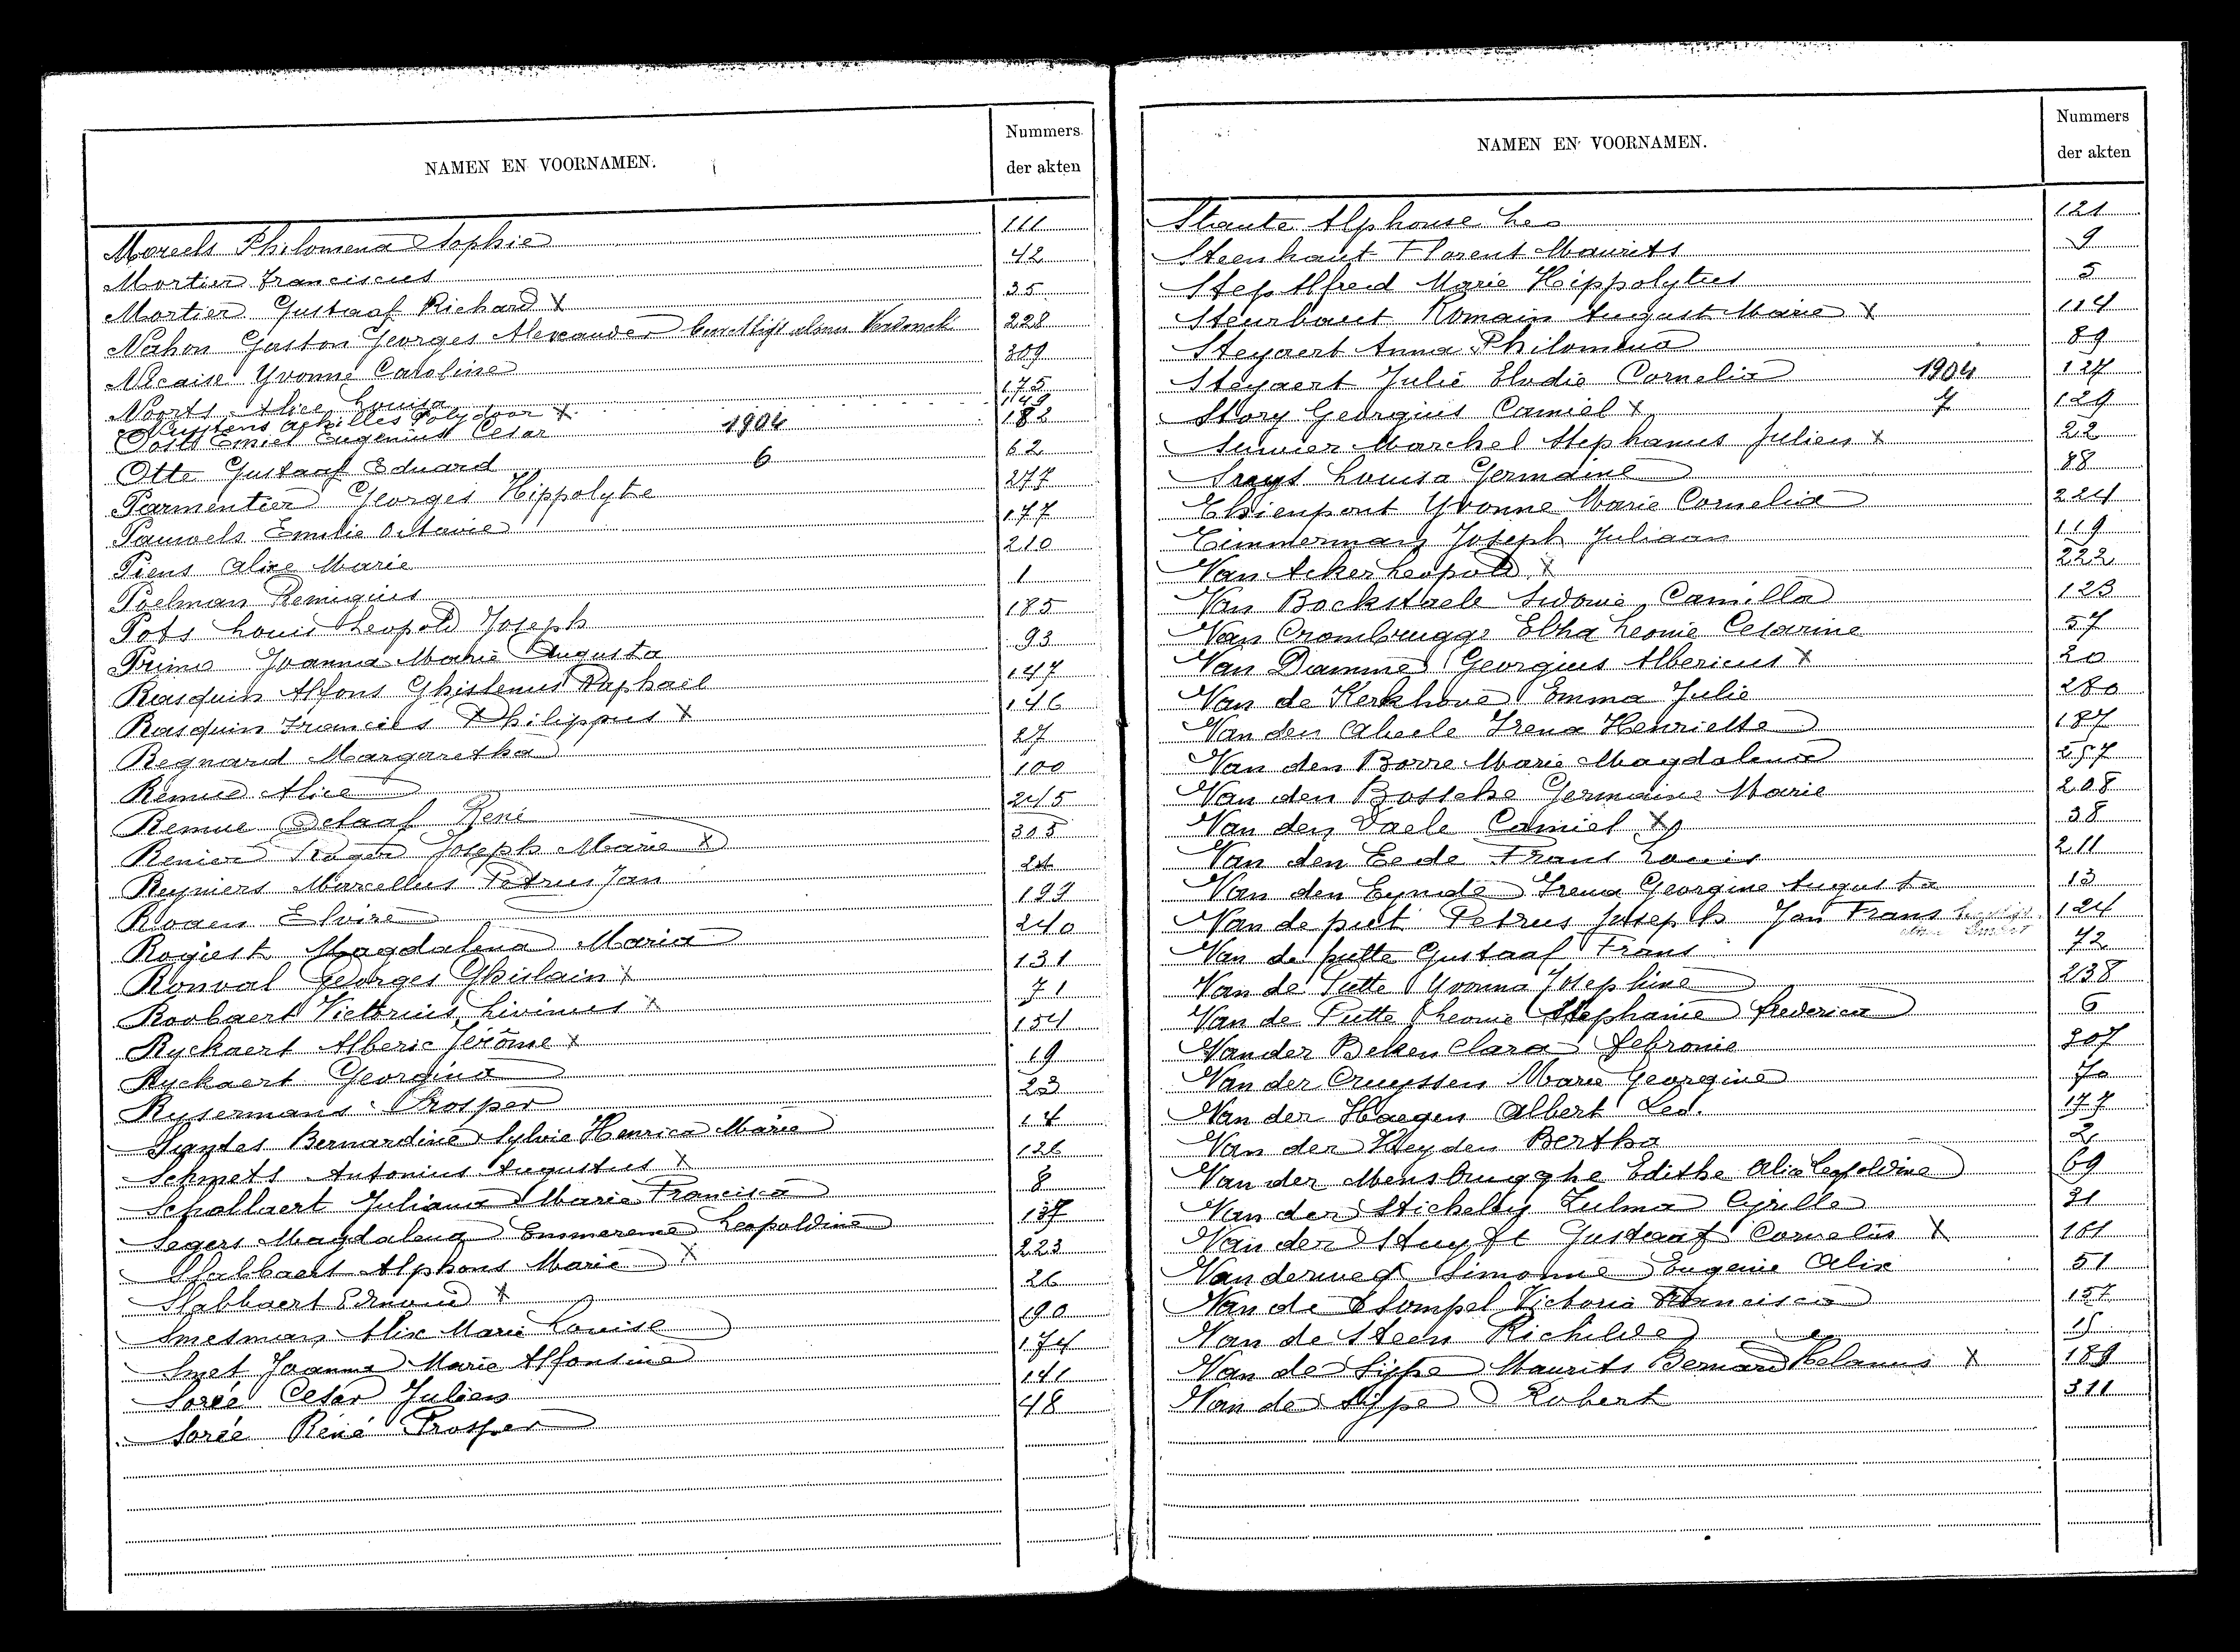 NAMEN EN VOORNAMEN. Nummers der akten
Moreels Philomena Sophie 111
Mortier Franciscus 42
Mortier Gustaaf Richard X 35
Nahon Gaston Georges Alexander 228
Nicaise Yvonne Caroline 309
Noorts Alice Louisa 175
Nuyttens Achilles Polydoor X 149
Oosts Emiel Eugenius Cesar 1904 182
Otte Gustaaf Eduard 6 62
Parmentier Georges Hippolyte 277
Pauwels Emilie Octavie 177
Piens Alixe Marie 210
Poelman Remigius 1
Pots Louis Leopold Joseph 185
Primo Joanna Marie Augusta 93
Rasquin Alfons Ghislenus Raphaël 147
Rasquin Francies Philippus X 146
Regnard Margaretha 27
Remue Alice 100
Remue Octaaf René 245
Renier Roger Joseph Marie X 305
Reyniers Marcellus Petrus Jan 24
Rogen Elvire 193
Rogiest Magdalena Maria 240
Ronval Georges Ghislain X 131
Roobaert Victorius Livinus X 71
Ryckaert Alberic Jérôme X 154
Ryckaert Georgina 19
Rysermans Prosper 23
Sandes Bernardine Sylvie Henrica Marie 14
Schmets Antonius Augustus X 126
Schollaert Juliana Marie Francisca 8
Segers Magdalena Emmerence Leopoldine 137
Slabbaert Alphons Marie X 223
Slabbaert Edmond X 26
Smesman Alix Marie Louise 190
Smet Joanna Marie Alfonsine 174
Sorée Cesar Julien 141
Sorée René Prosper 48
NAMEN EN VOORNAMEN. Nummers der akten
Staute Alphonse Leo 121
Steenhaut Florent Maurits 9
Step Alfred Marie Hippolytus 5
Steurbaut Romain August Marie X 114
Steyaert Anna Philomena 89
Steyaert Julie Elodie Cornelia 1904 127
Story Georgius Camiel X 7 129
Sunier Marchel Stephanus Julien X 22
Sruys Louisa Germaine 88
Thienpont Yvonne Marie Cornelia 224
Timmermans Joseph Juliaan 119
Van Acker Leopold X 222
Van Bockstaele Sidonie Camilla 123
Van Crombrugge Elha Leonie Cesarine 57
Van Damme Georgius Albericus X 20
Van de Kerkhove Emma Julie 280
Van den Abeele Irena Henriette 187
Van den Borre Marie Magdalena 257
Van den Bossche Germaine Marie 208
Van den Daele Camiel X 38
Van den Eede Frans Louis 211
Van den Eynde Irena Georgine Augusta 13
Van de put Petrus Joseph Jan Frans 124
Van de putte Gustaaf Frans 72
Van de Putte Yvonna Josephine 238
Van de Putte Leonie Stephanie frederica 6
Vander Beken Clara Febronie 207
Van der Cruyssen Marie Georgine 70
Van der Haegen Albert Leo. 177
Van der Heyden Bertha 2
Van der Mensbrugghe Edithe Alice Leopoldine 69
Van der Stichelen Zulma Cyrille 31
Van der Stuyft Gustaaf Cornelius X 161
Van derweg Simonne Eugenie Alix 51
Van de Stompel Victoria Francisca 157
Van de Steen Richilde 15
Van de Sijpe Maurits Bernard X 189
Van de Sijpe Robert 311